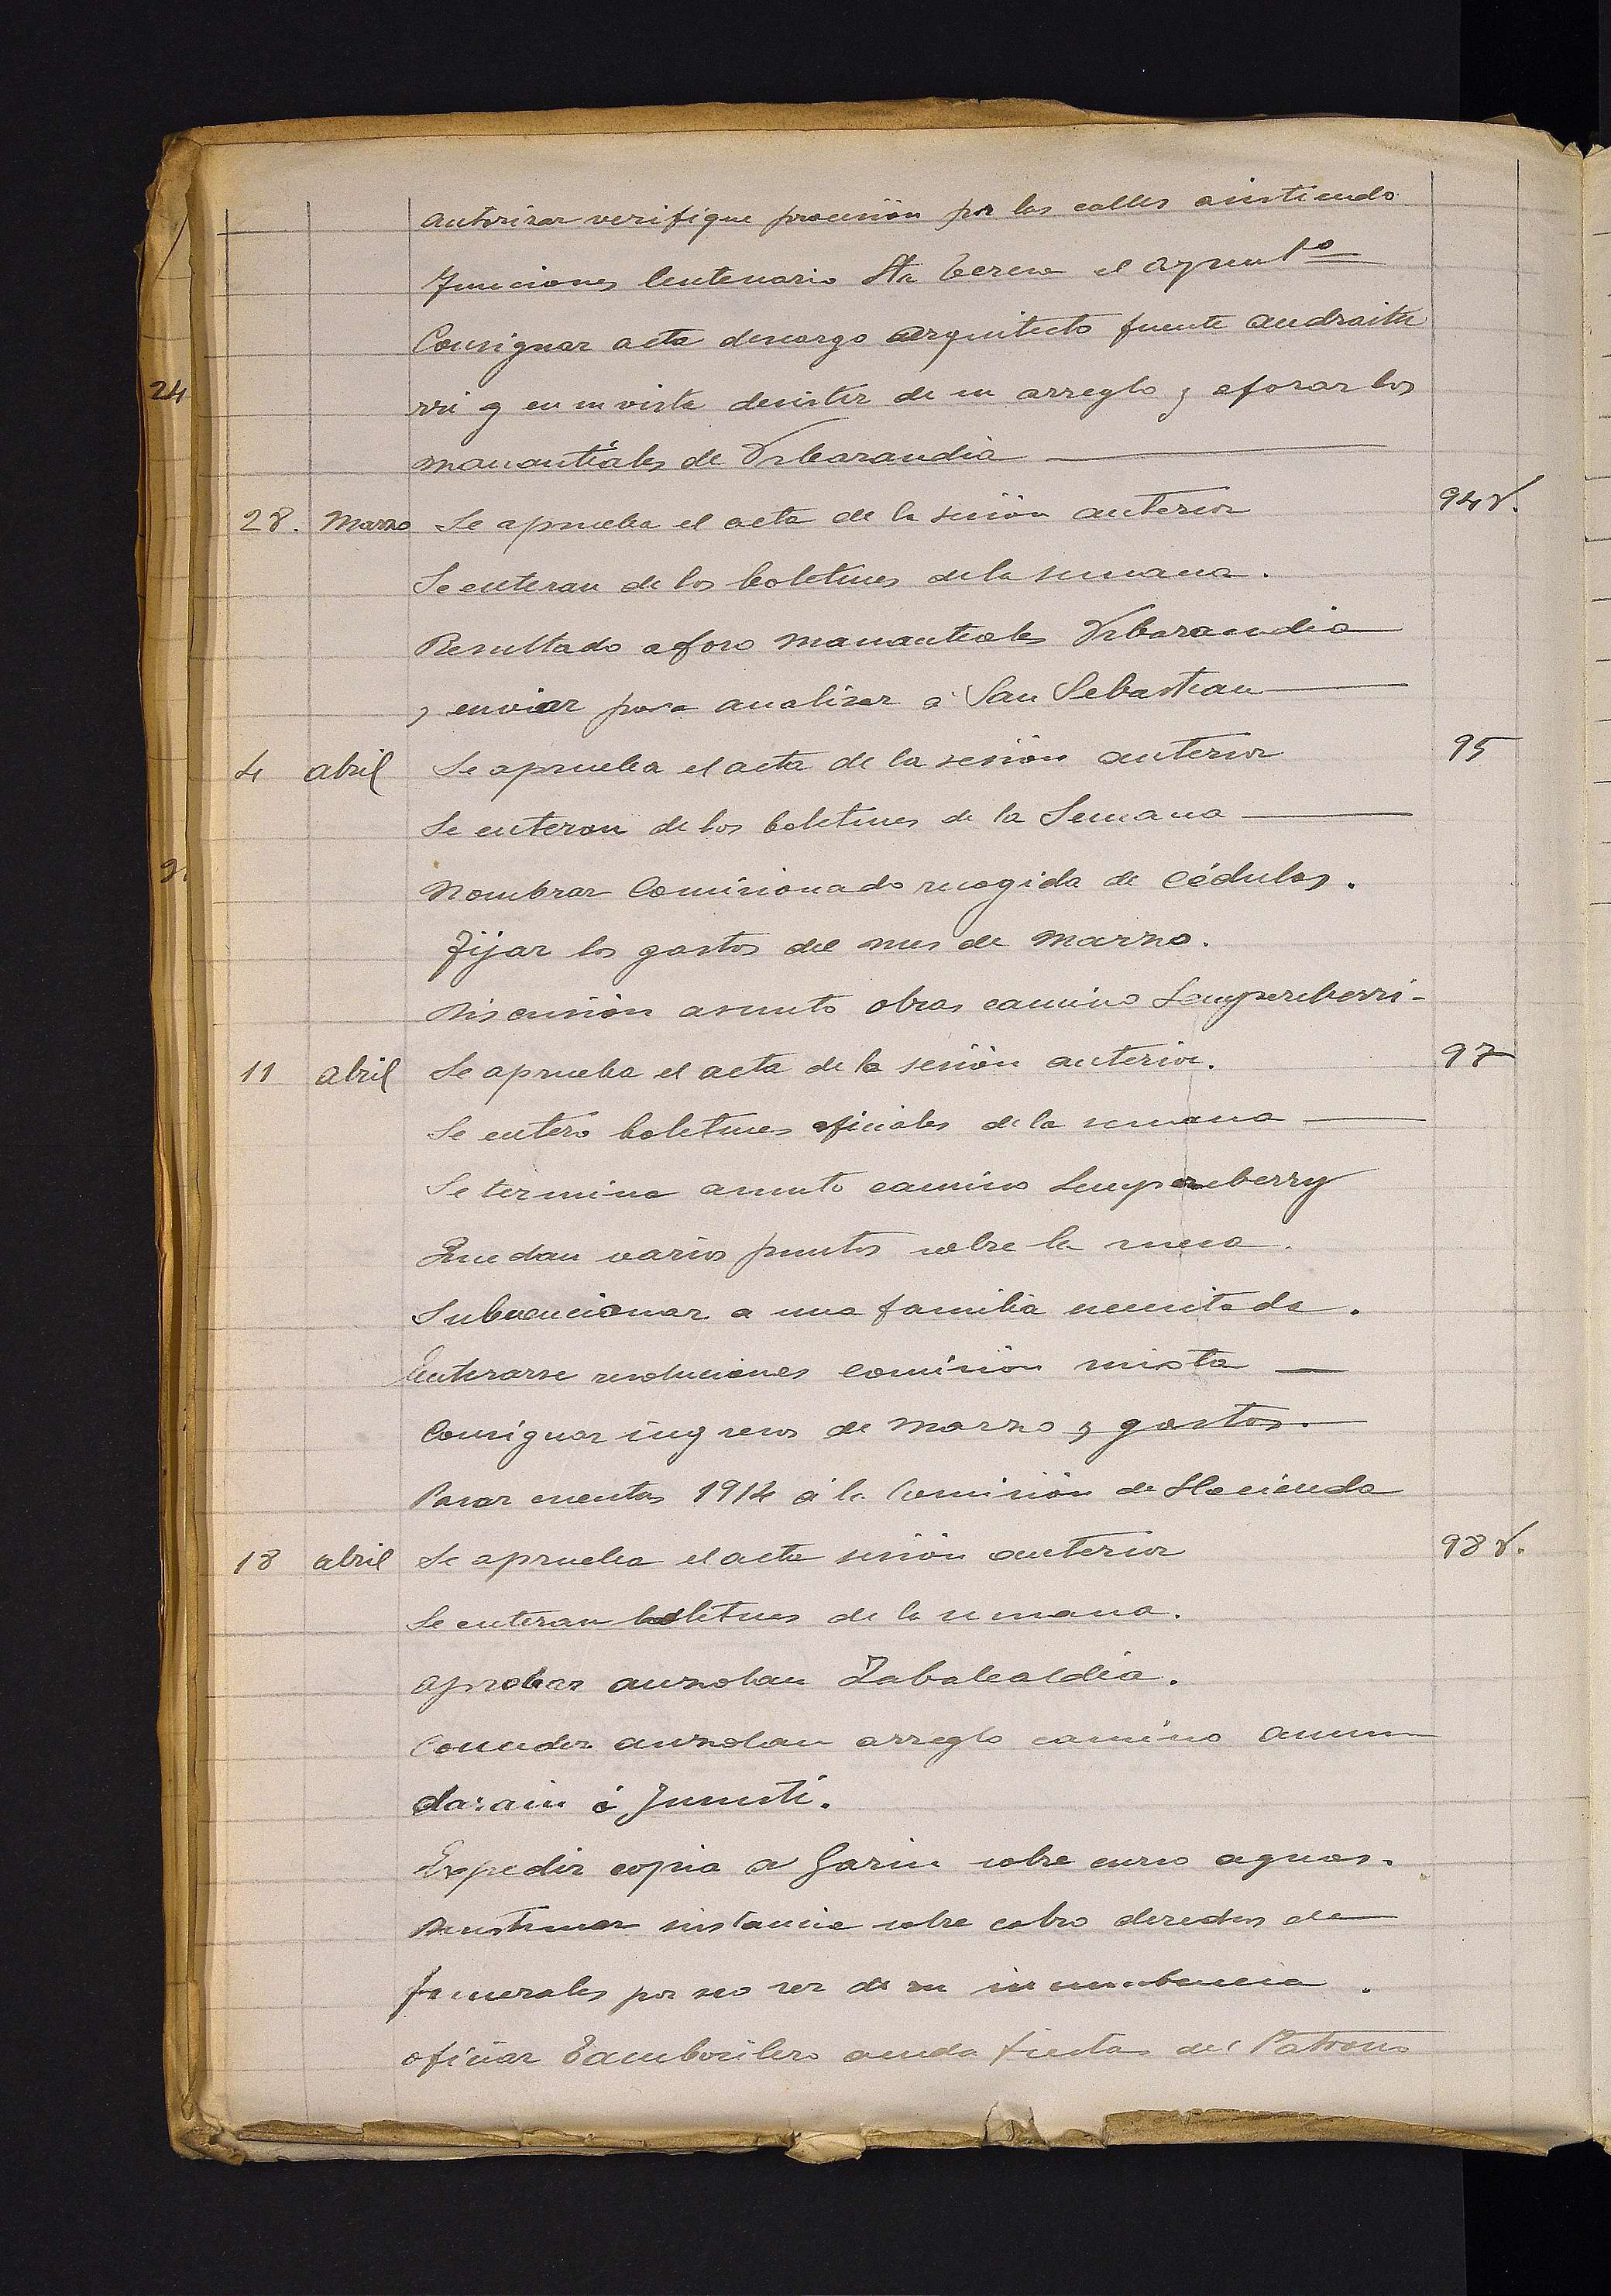 autorizar verifique procesión por las calles asistiendo
funciones Centenario Sta Teresa el Ayuntº
Consignar acta descargo arquitecto fuente Andraitu
rri y en su vista desistir de su arreglo y aforar los
24
manantiales de Urbarandia
28. Marzo Se aprueba el acta de la sesión anterior 94 v.
Se enteran de los boletines de la semana.
Resultado aforo manantiales Urbarandia
y enviar para analizar á San Sebastian
4 abril Se aprueba el acta de la sesión anterior 95
Se enteran de los boletines de la Semana
Nombrar Comisionado recogida de Cédulas.
fijar los gastos del mes de Marzo.
Discusión asunto obras camino Sempereberri-
11 abril Se aprueba el acta de la sesión anterior. 97
Se entero boletines oficiales de la semana
Se termina asunto camino Sempereberry
Quedan varios puntos sobre la mesa.
Subvencionar a una familia necesitada.
Enterarse resoluciones comisión mixta
Consignar ingresos de Marzo y gastos.
Pasar cuentas 1914 á la Comisión de Hacienda
18 abril Se aprueba el acta sesión anterior 98 v.
Se enteran boletines de la semana.
Aprobar auzolan Zabalealdea.
Conceder auzolan arreglo camino Amun
darain á Junusti.
Expedir copia a Garin sobre curso aguas.
Desestimar instancia sobre cobro derechos de
funerales por no ser de su incumbencia.
oficiar Tamborilero acuda fiestas del Patrono